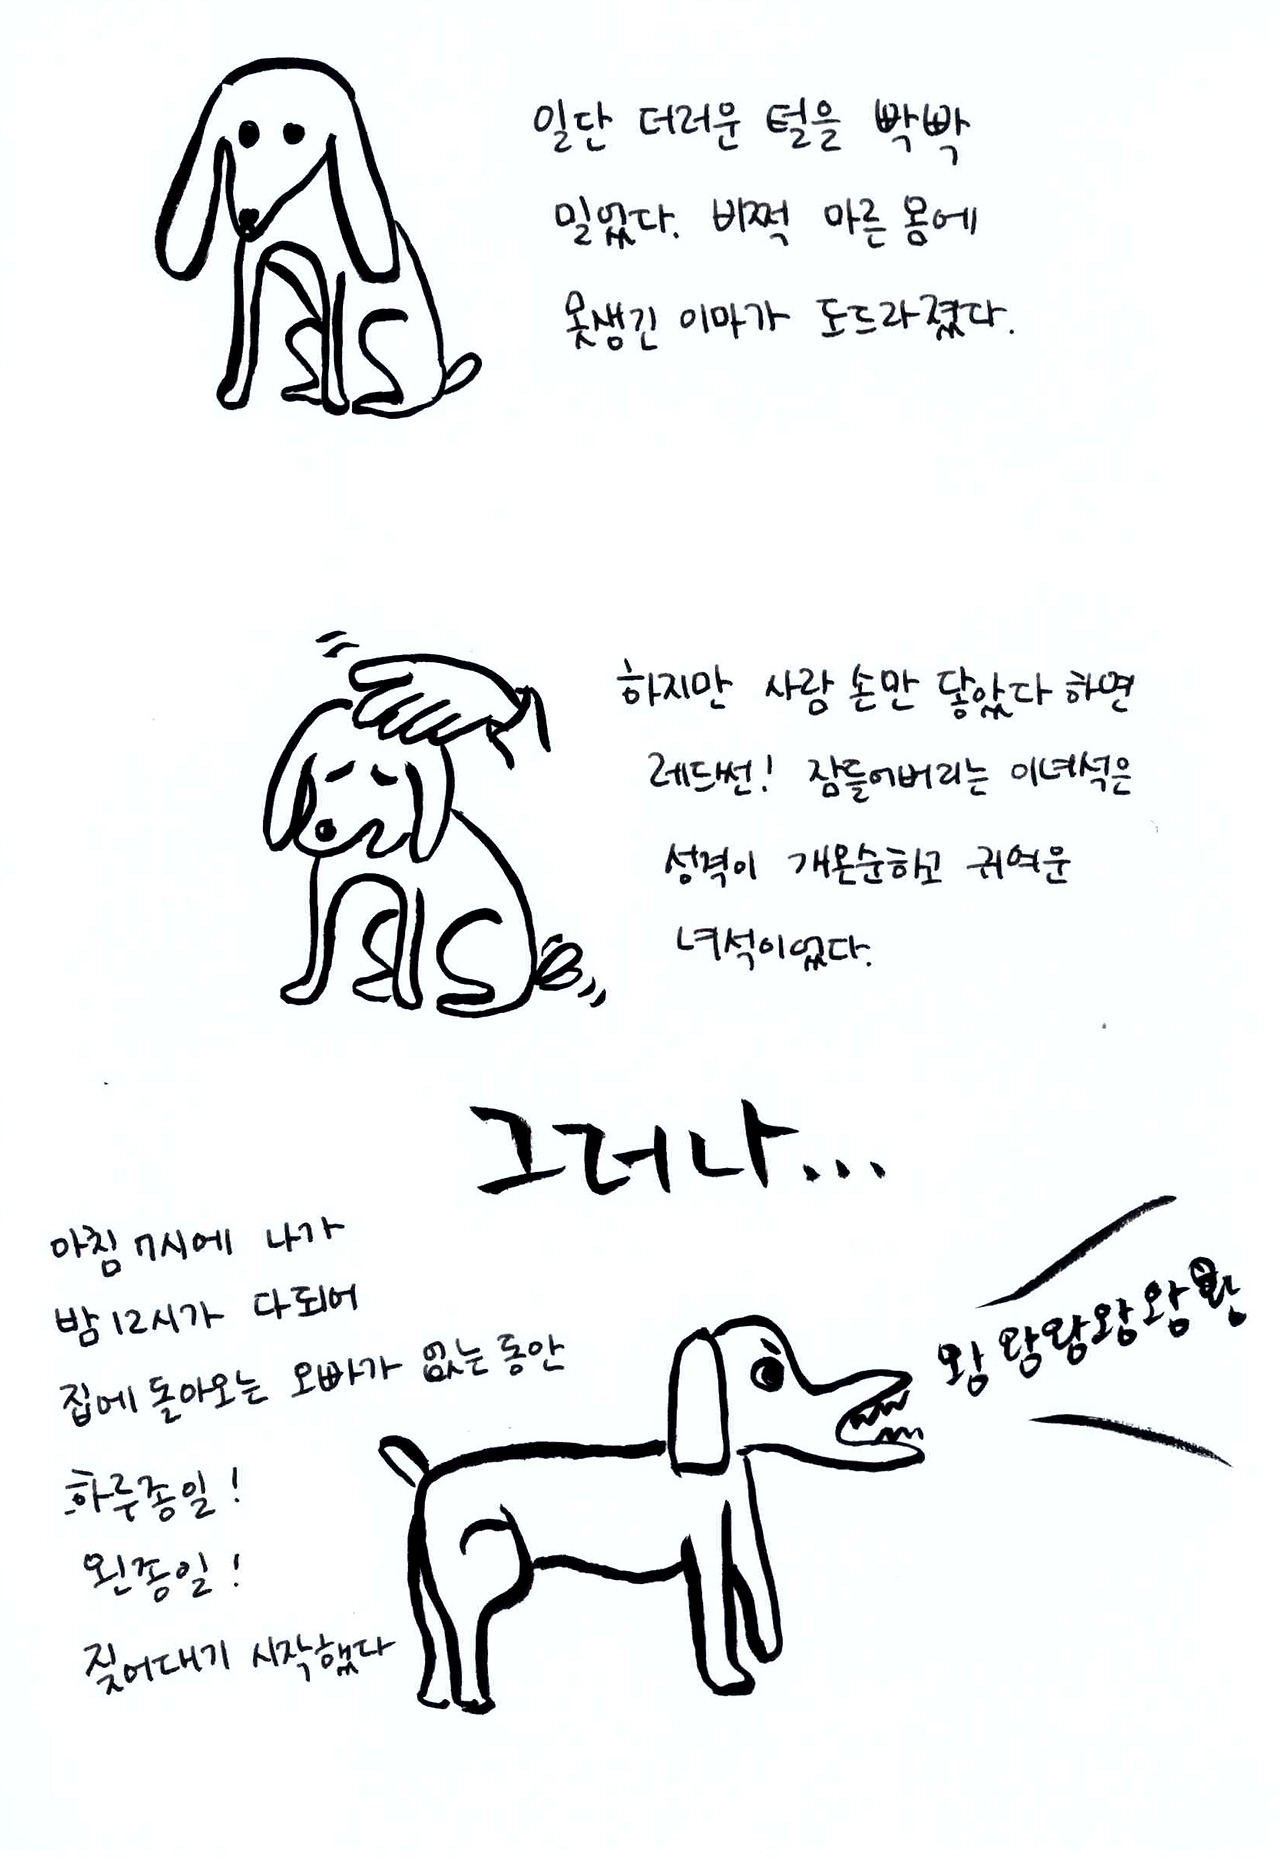 일단 더러운 털을 빡빡
밀었다. 비쩍 마른 몸에
못생긴 이마가 도드라졌다.
하지만 사람 손만 닿았다 하면
레드썬! 잠들어버리는 이녀석은
성격이 개온순하고 귀여운
녀석이었다.
그러나...
아침 7시에 나가
밤 12시가 다되어
집에 돌아오는 오빠가 없는 동안
하루종일!
왼종일!
짖어대기 시작했다
왕왕왕왕왕왕